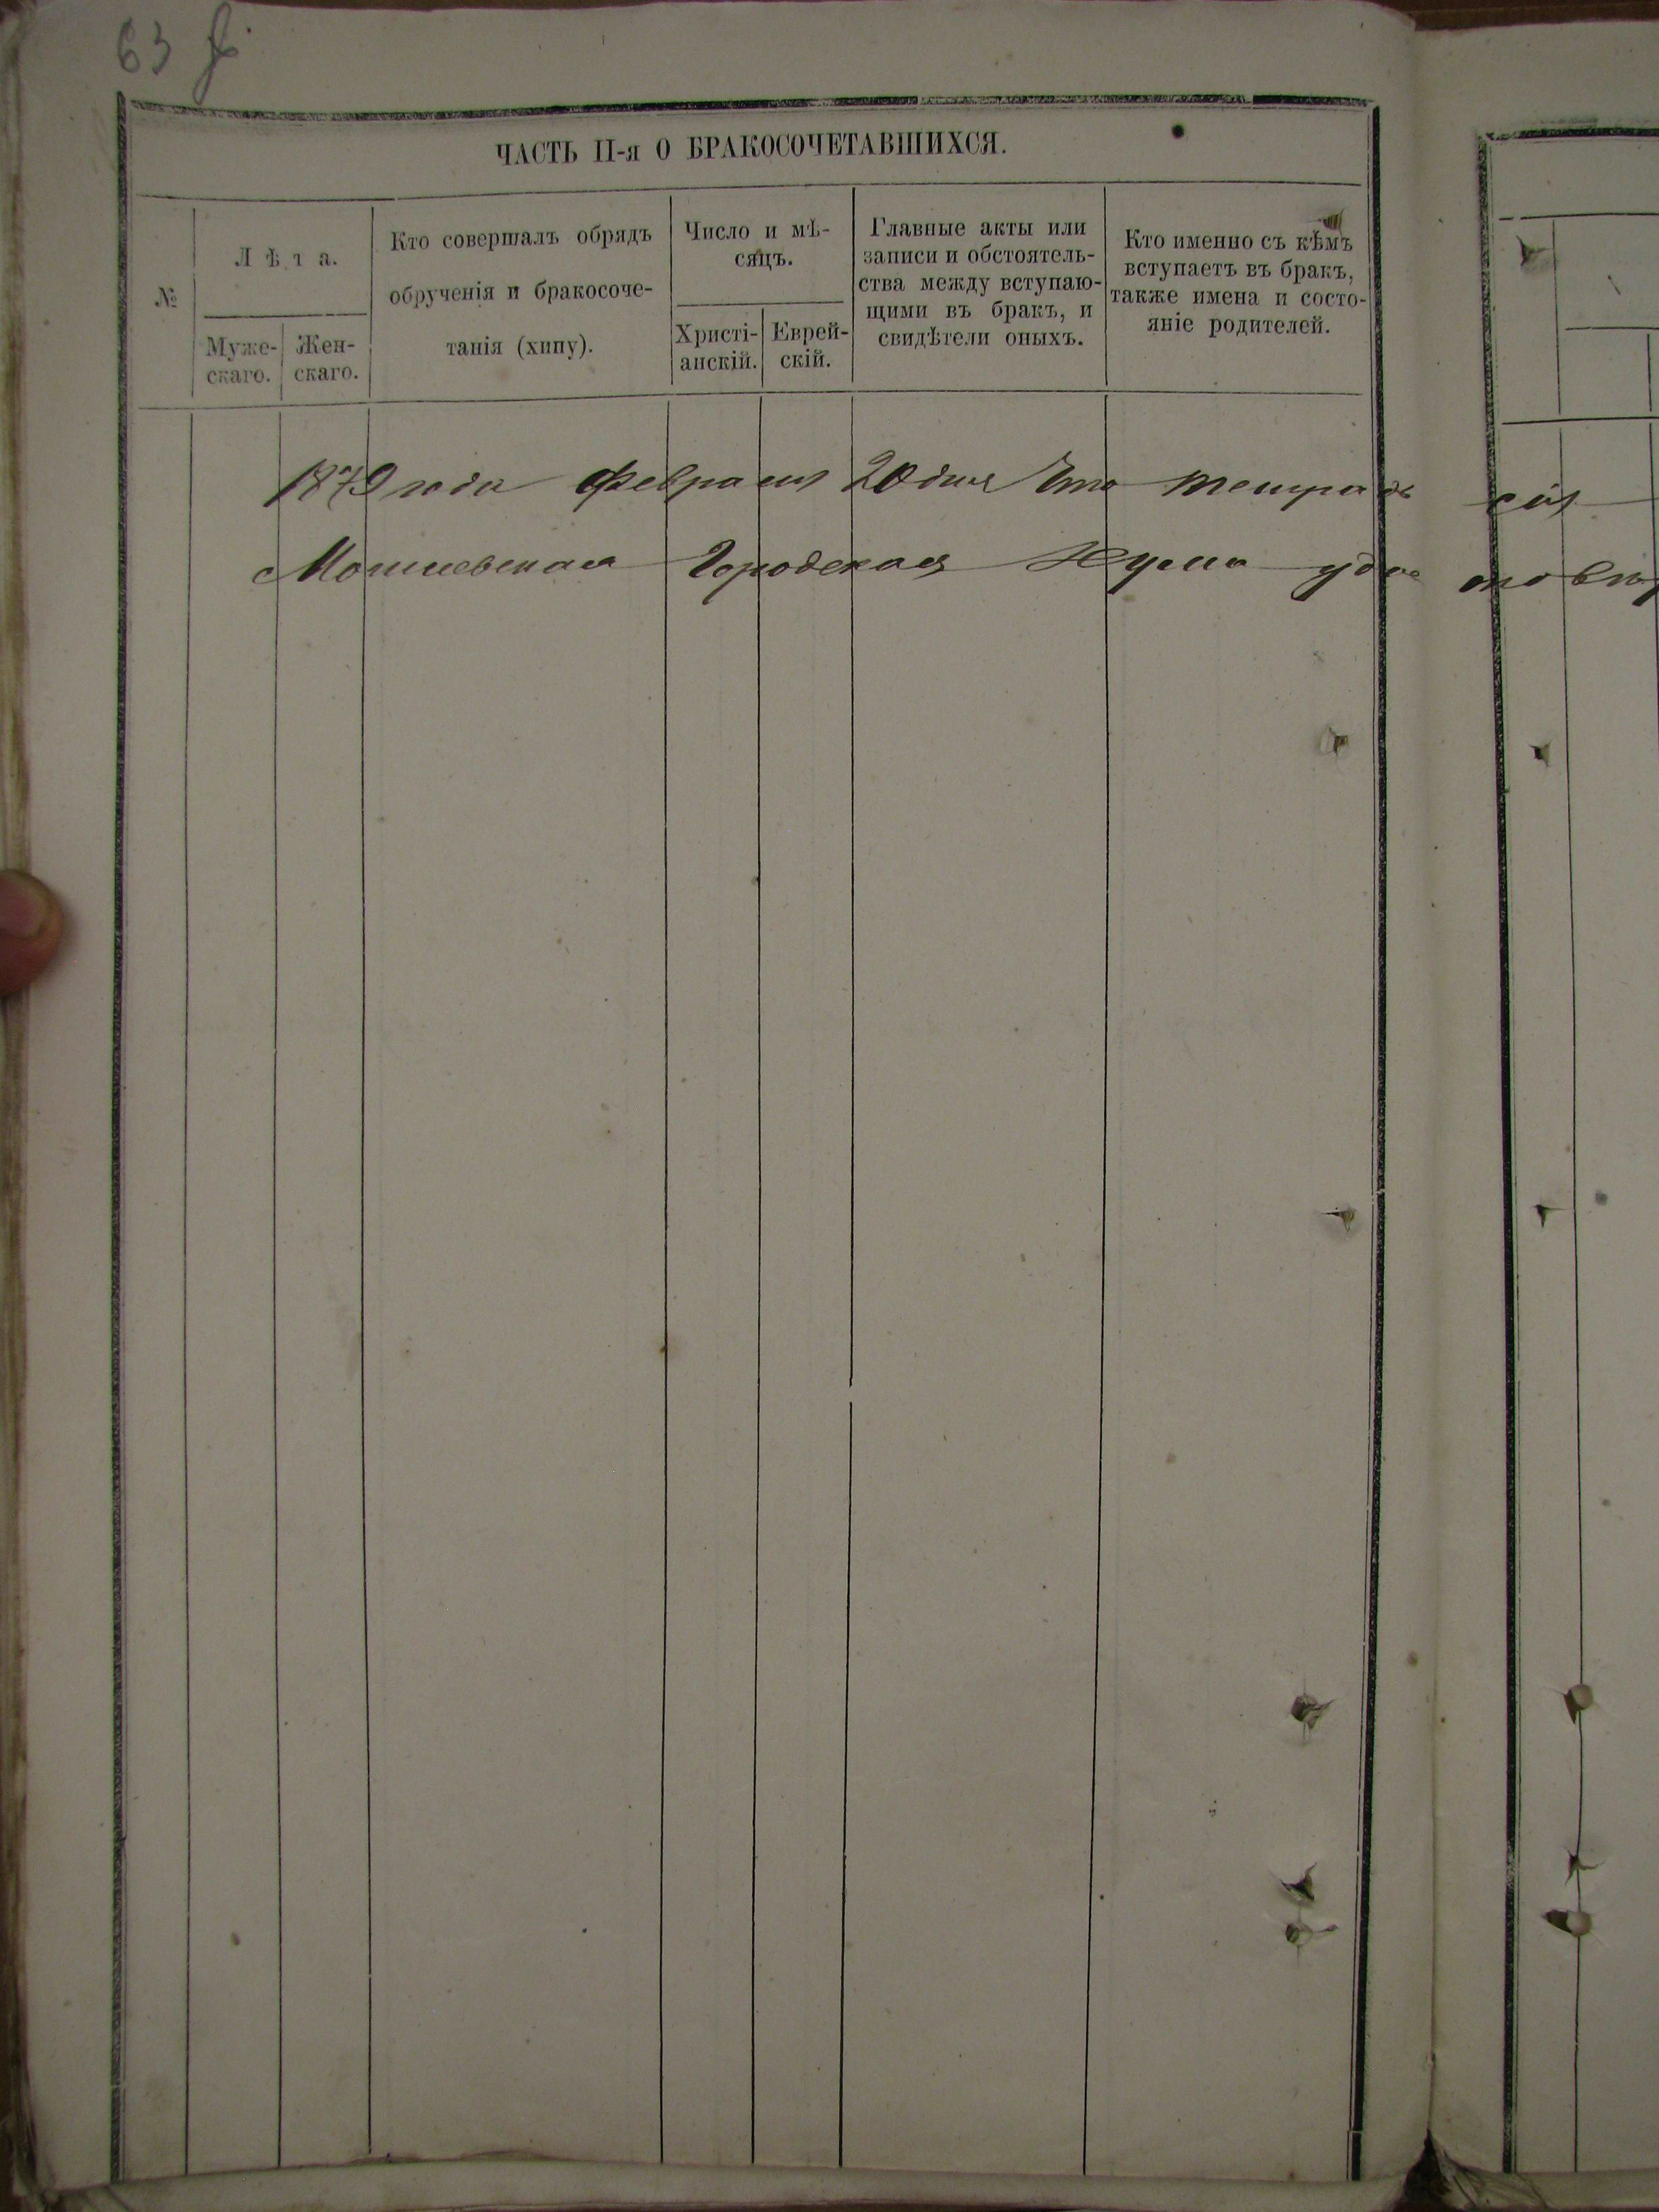 63
ЧАСТЬ II-я О БРАКОСОЧЕТАВШИХСЯ.
№
Лѣта.
Муже-
скаго.
Жен-
скаго.
Кто совершалъ обрядъ
обрученія и бракосоче-
танія (хипу).
Число и мѣ-
сяцъ.
Христі-
анскій.
Еврей-
скій.
Главные акты или
записи и обстоятель-
ства между вступаю-
щими въ бракъ, и
свидѣтели оныхъ.
Кто именно съ кѣмъ
вступаетъ въ бракъ,
также имена и состо-
яніе родителей.
1879 года Февраля 20 дня Что тетрадь сія
Городская Дума удос